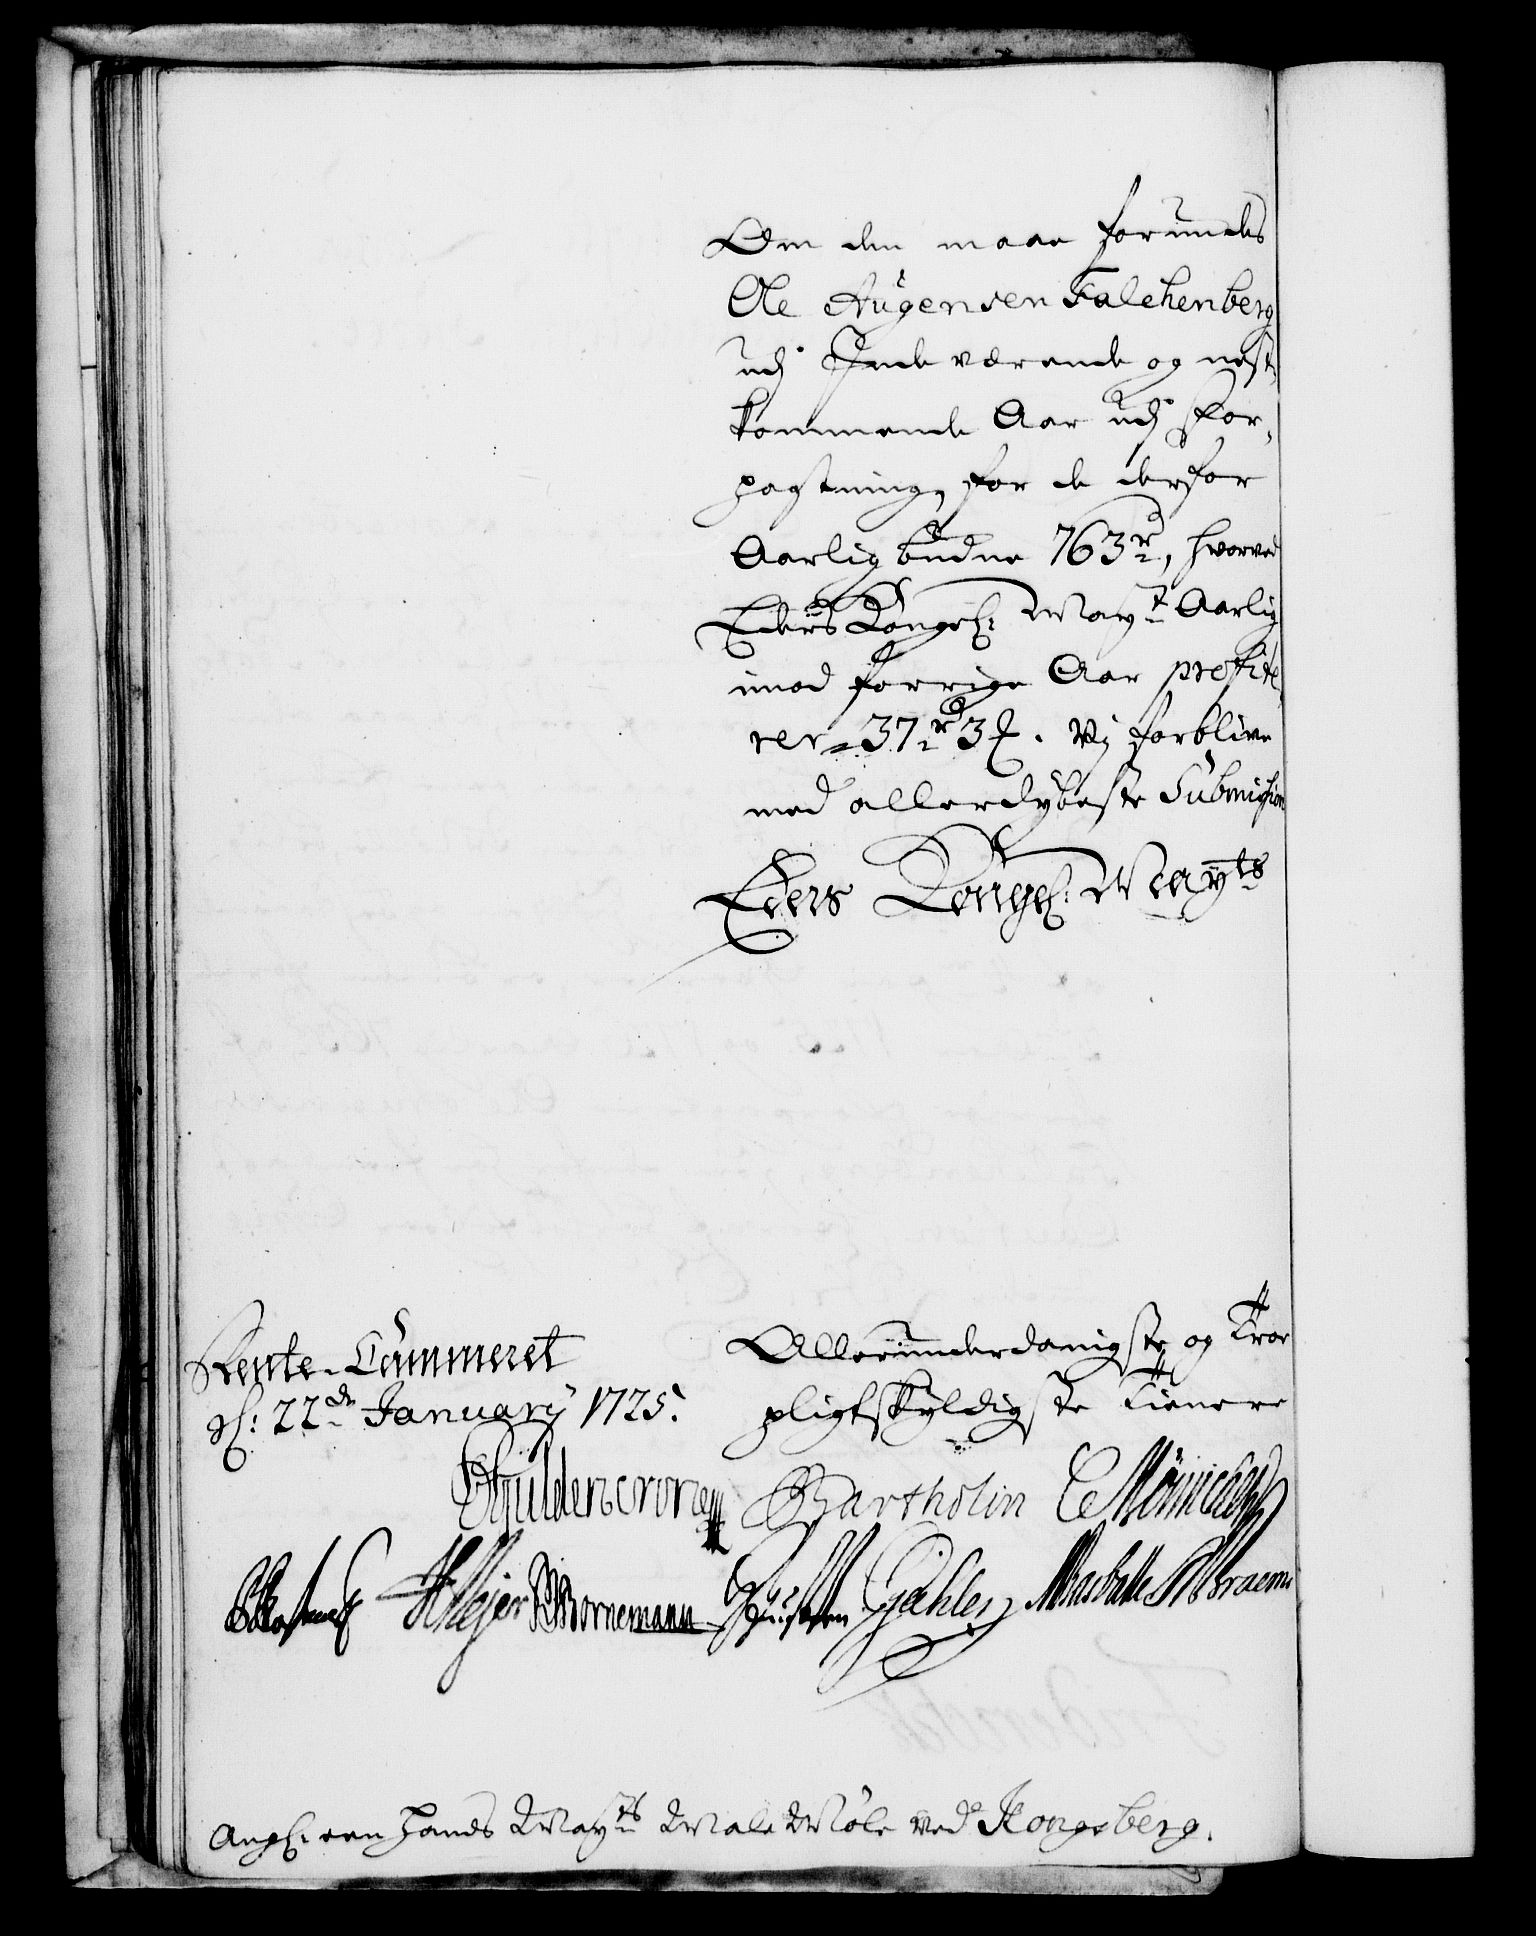 Om den maae forundes
Ole Aügensen Falchenberg
udj Inde værende og nest,
kommende Aar udj For,
pagtning, for de derfor
Aarlig budne 763 rd, hvorved
Eders Kongel: Mayt Aarlig
imod forrige Aar profite,
rer 37 rd 3 ȶ. Vj forblive
med allerdybeste Submission
Eders Kongel: Mayts
Rente-Cammeret
d: 22de January 1725.
Allerunderdanigste og Troe
pligtskyldigste Tienere
Güldencrone Bartholin CMönnichen
HMejer Bornemann Gähler
Angl: een Hands Mayts Male Mølle ved Kongsberg.